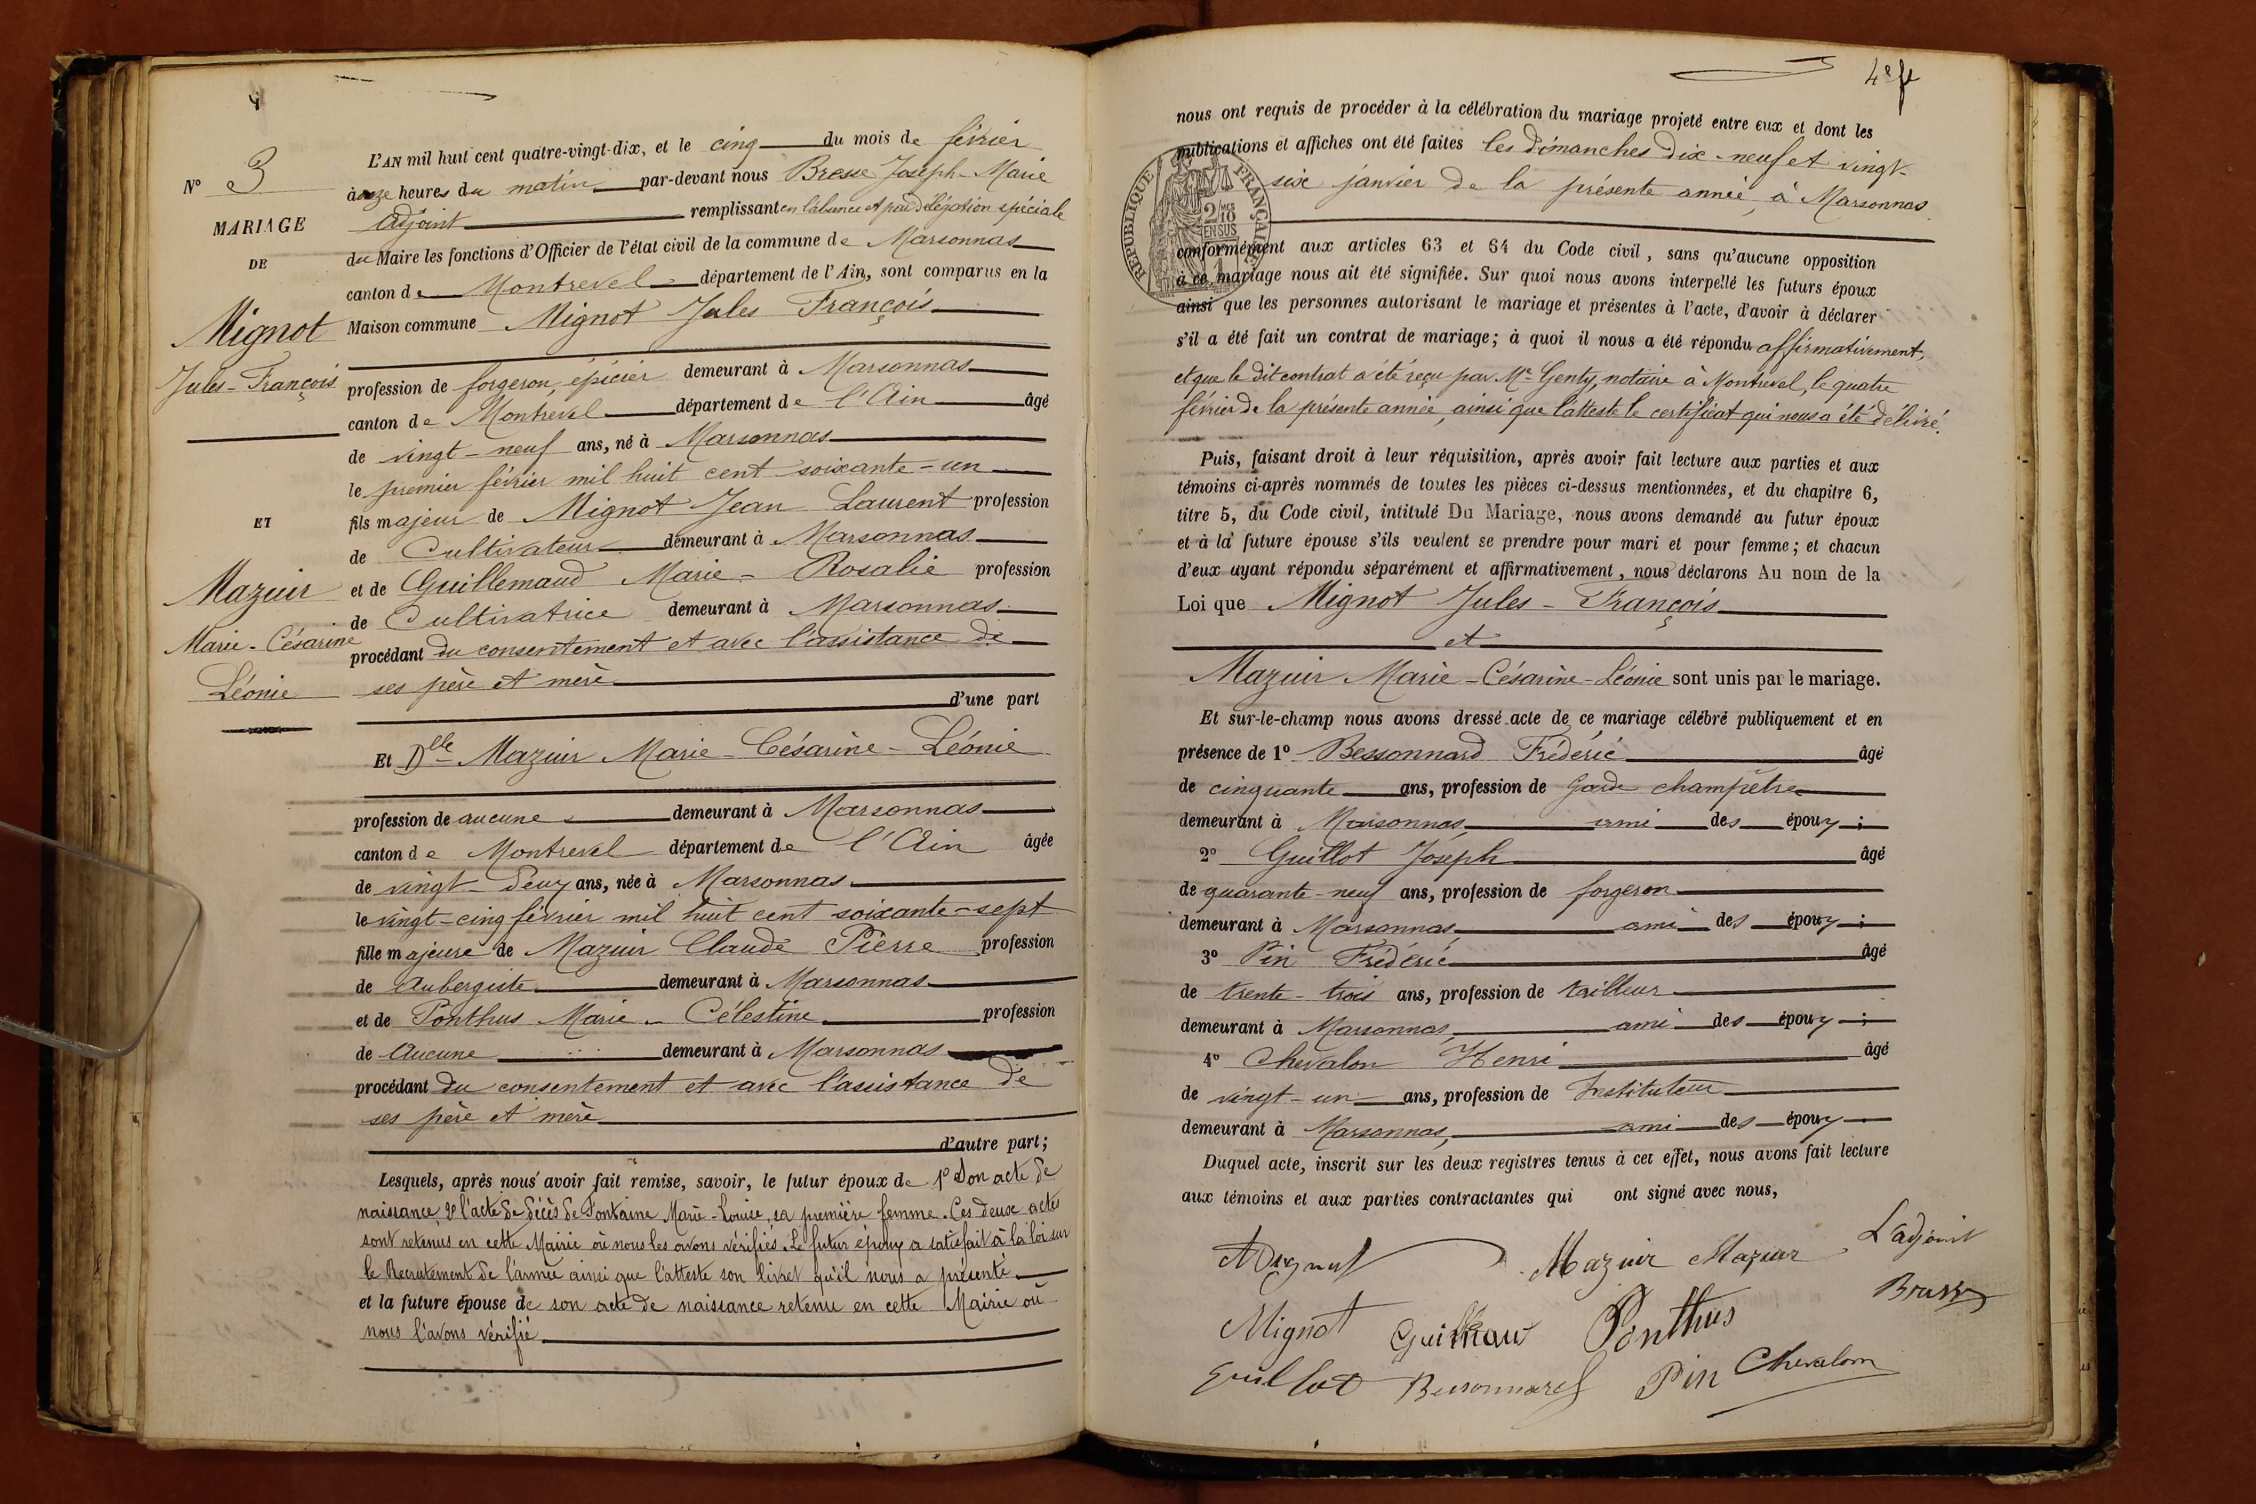 4
N° 3
MARIAGE
DE
Mignot
Jules-François
ET
Mazuir
Marie-Césarine
Léonie
L'AN mil huit cent quatre-vingt-dix, et le cinq du mois de février
à onze heures du matin par-devant nous Bresse Joseph-Marie
adjoint remplissant en l'absence et par délégation spéciale
du Maire les fonctions d'Officier de l'état civil de la commune de Marsonnas
canton de Montrevel département de l'Ain, sont comparus en la
Maison commune Mignot Jules François
profession de forgeron, épicier demeurant à Marsonnas
canton de Montrevel département de l'Ain âgé
de vingt-neuf ans, né à Marsonnas
le premier février mil huit cent soixante-un
fils majeur de Mignot Jean Laurent profession
de Cultivateur demeurant à Marsonnas
et de Guillemaud Marie-Rosalie profession
de Cultivatrice demeurant à Marsonnas
procédant du consentement et avec l'assistance de
ses père et mère
d'une part
Et Dlle Mazuir Marie-Césarine-Léonie
profession de aucune demeurant à Marsonnas
canton de Montrevel département de l'Ain âgée
de vingt-deux ans, née à Marsonnas
le vingt-cinq février mil huit cent soixante-sept
fille majeure de Mazuir Claude Pierre profession
de Aubergiste demeurant à Marsonnas
et de Ponthus Marie-Célestine profession
de Aucune demeurant à Marsonnas
procédant du consentement et avec l'assistance de
ses père et mère
d'autre part;
Lesquels, après nous avoir fait remise, savoir, le futur époux de 1° Son acte de
naissance, 2° l'acte de décès de Fontaine Marie-Louise, sa première femme. Ces deux actes
sont retenus en cette Mairie où nous les avons vérifiés. Le futur époux a satisfait à la loi sur
le Recrutement de l'armée ainsi que l'atteste son livret qu'il nous a présenté
et la future épouse de son acte de naissance retenu en cette Mairie où
nous l'avons vérifié
4e f
nous ont requis de procéder à la célébration du mariage projeté entre eux et dont les
publications et affiches ont été faites les dimanches dix-neuf et vingt-
six janvier de la présente année, à Marsonnas
RÉPUBLIQUE FRANÇAISE
2/10
EN SUS
conformément aux articles 63 et 64 du Code civil, sans qu'aucune opposition
à ce mariage nous ait été signifiée. Sur quoi nous avons interpellé les futurs époux
ainsi que les personnes autorisant le mariage et présentes à l'acte, d'avoir à déclarer
s'il a été fait un contrat de mariage; à quoi il nous a été répondu affirmativement,
et que le dit contrat a été reçu par Me Genty, notaire à Montrevel, le quatre
février de la présente année, ainsi que l'atteste le certificat qui nous a été délivré.
Puis, faisant droit à leur réquisition, après avoir fait lecture aux parties et aux
témoins ci-après nommés de toutes les pièces ci-dessus mentionnées, et du chapitre 6,
titre 5, du Code civil, intitulé Du Mariage, nous avons demandé au futur époux
et à la future épouse s'ils veulent se prendre pour mari et pour femme; et chacun
d'eux ayant répondu séparément et affirmativement, nous déclarons Au nom de la
Loi que Mignot Jules-François
et
Mazuir Marie-Césarine-Léonie sont unis par le mariage.
Et sur-le-champ nous avons dressé acte de ce mariage célébré publiquement et en
présence de 1° Bessonnard Frédéric âgé
de cinquante ans, profession de Garde champêtre
demeurant à Marsonnas ami des époux;
2° Guillot Joseph âgé
de quarante-neuf ans, profession de forgeron
demeurant à Marsonnas, ami des époux;
3° Pin Frédéric âgé
de trente-trois ans, profession de tailleur
demeurant à Marsonnas, ami des époux;
4° Chevalon Henri âgé
de vingt-un ans, profession de Instituteur
demeurant à Marsonnas, ami des époux
Duquel acte, inscrit sur les deux registres tenus à cet effet, nous avons fait lecture
aux témoins et aux parties contractantes qui ont signé avec nous,
Mignot Mazuir Mazuir L'adjoint
Bresse
Mignot Ponthus
Guillot Bessonnard Pin Chevalon